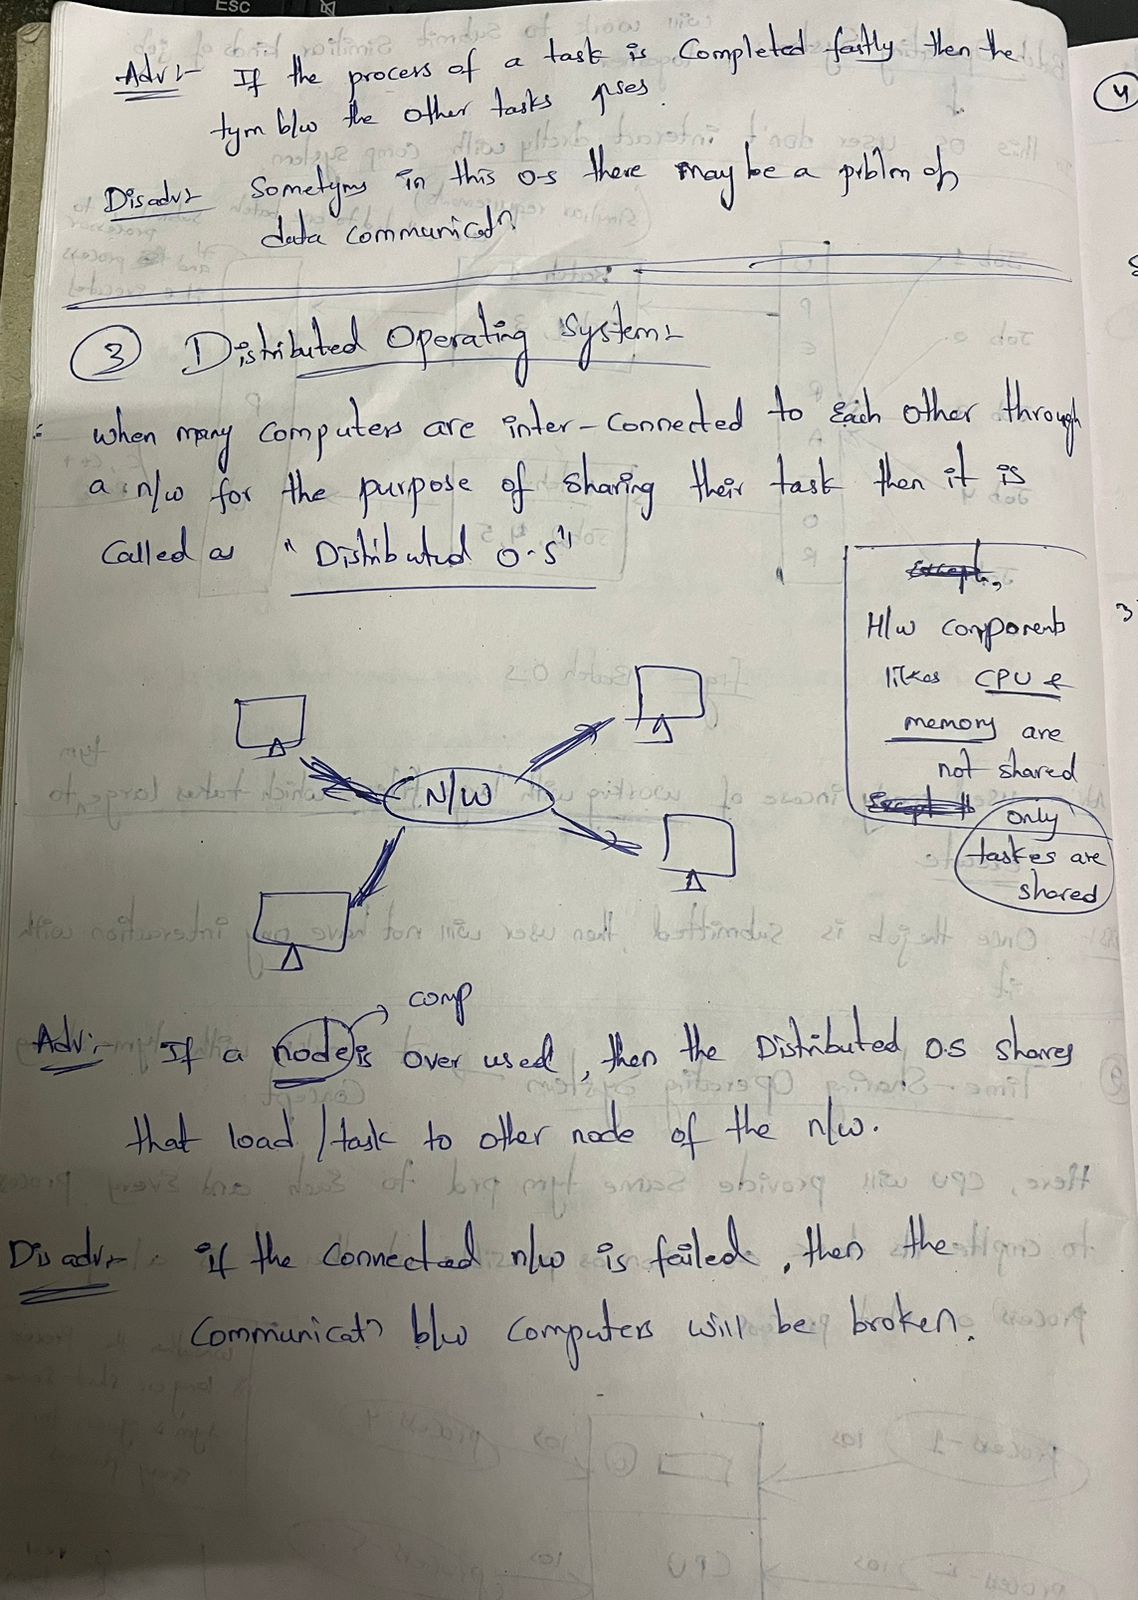 ESC
Adv:- If the process of a task is Completed fastly then the
tym b/w the other tasks
Disadv:- Sometyms in this o-s there may be a prblm of
data communicatn
4
3 Distributed Operating System:-
when many computers are inter-connected to Each other through
a n/w for the purpose of sharing their task then it is
Called as "Distributed O.S"
H/w components
likes CPU &
memory are
not shared
only
taskes are
shared
N/W
comp
Adv:- If a node is over used, then the Distributed O.S shares
that load/task to other node of the n/w.
Disadv:- if the connected n/w is failed, then the
Communicatn b/w Computers will be broken.